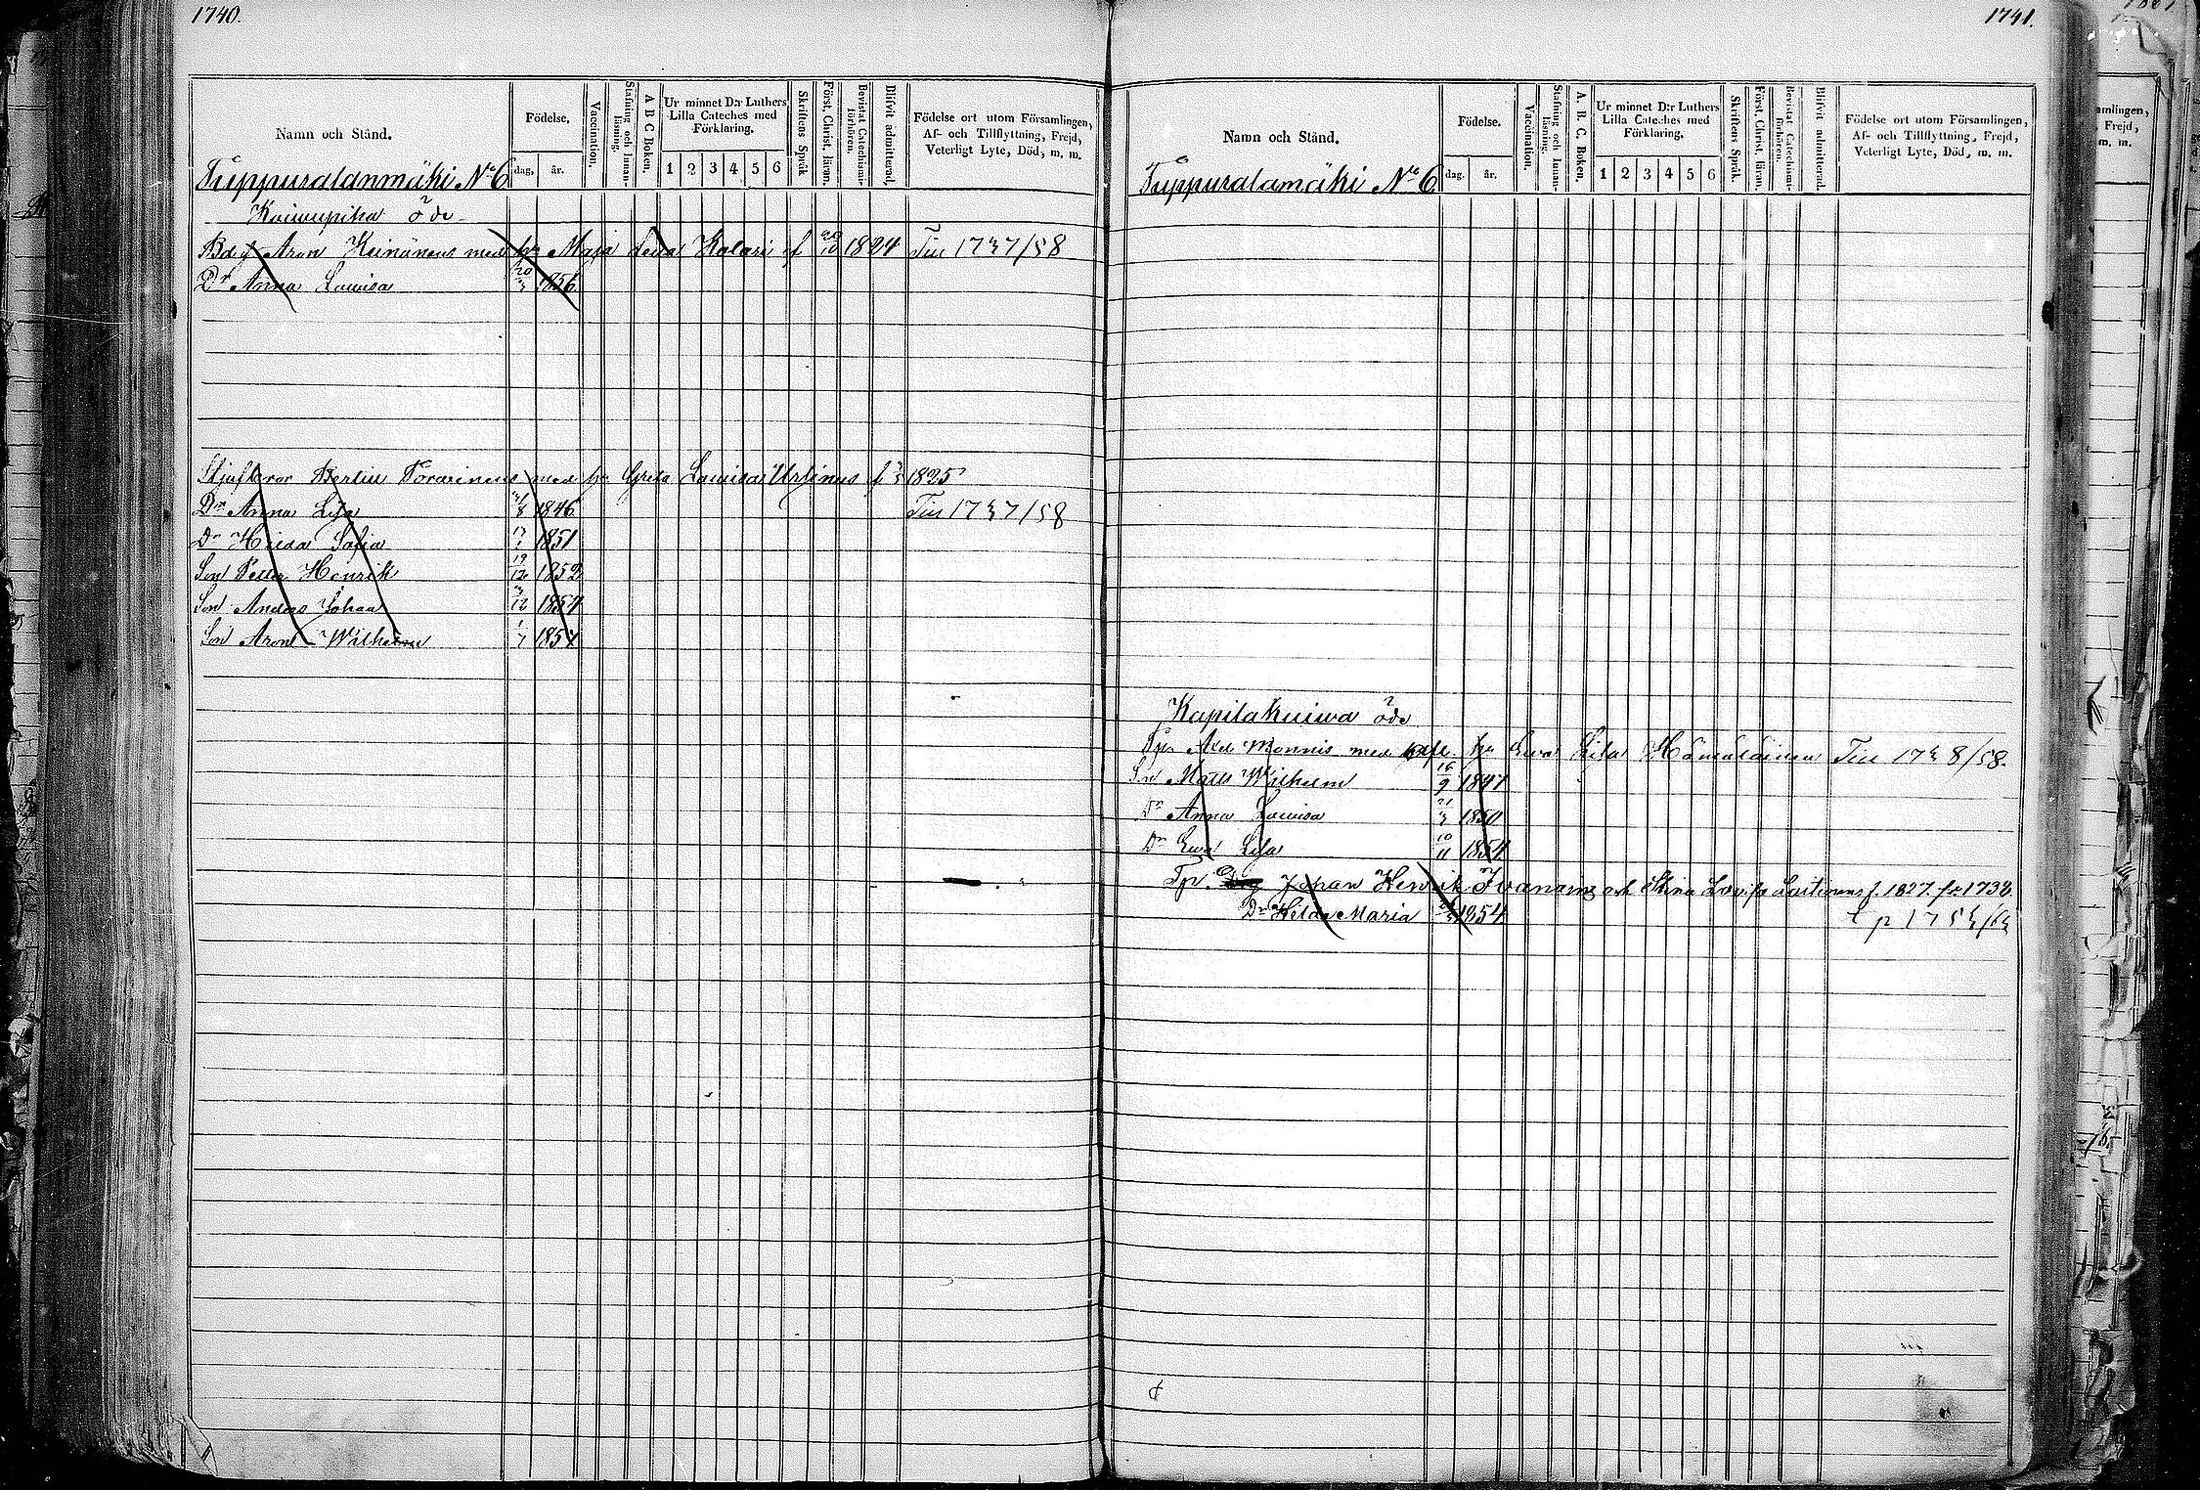 1740.
Namn och Stånd.
Födelse,
dag, år.
Vaccination.
Stafning och Innan-läsning.
A B C Boken.
Ur minnet D:r Luthers Lilla Cateches med Förklaring.
1 2 3 4 5 6
Skriftens Språk
Först. Christ. läran.
Bevistat Catechismi-förhören.
Blifvit admitterad,
Födelse ort utom Församlingen, Af- och Tillflyttning, Frejd, Veterligt Lyte, Död, m. m.
Tuppuralanmäki No 6
Kaivupiha öde
Aron Keinänens med hr Maja Lena Kolari f 1824 Tin 1737/58
Dr Anna Lowisa 1856
Bertill Torarinens med hr Greta Lowisa Ursinus f 1825
Dr Anna Lisa 1846 Tin 1737/58
Dr Hilda Sofia 1851
Son Petter Henrik 19/12 1852
Son Anders Johan 1854
Son Aron Wilhelm 1/7 185
1741.
Namn och Stånd.
Födelse.
dag. år.
Vaccination.
Stafning och Innan-läsning.
A. B. C. Boken.
Ur minnet D:r Luthers Lilla Cateches med Förklaring.
1 2 3 4 5 6
Skriftens Språk.
Först. Christ. läran.
Bevistat Catechismi-förhören.
Blifvit admitterad.
Födelse ort utom Församlingen, Af- och Tillflyttning, Frejd, Veterligt Lyte, Död, m. m.
Tuppuralamäki No 6
Kapilakuiwa öde
Monnis med hr Ewa Lisa Hämäläinen Tin 1738/58.
Son Matts Wilhelm 16/9 1847
Dr Anna Lowisa 21/3 1850
Dr Ewa Lisa 10/11 1854
Tp. Johan Henrik Ivanans och Stina Lovisa f. 1827. fr 1738
Dr Hilda Maria 1854 t p 175